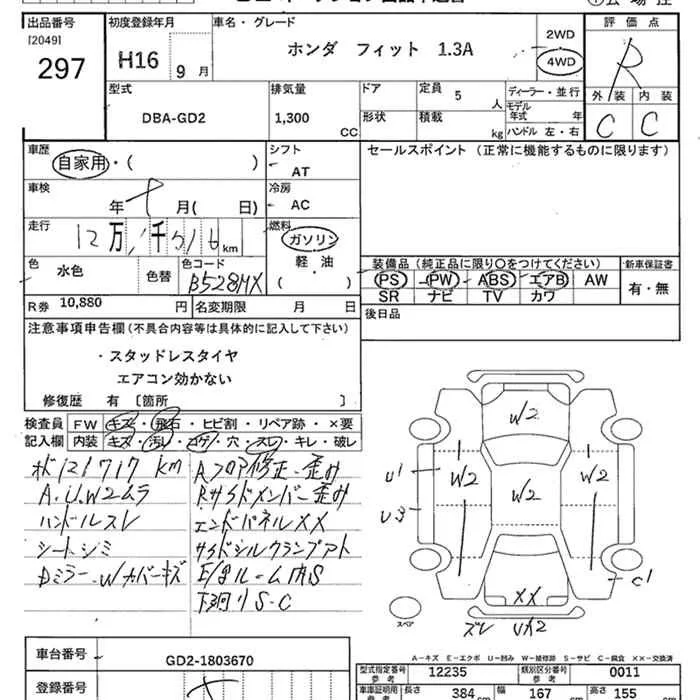 出品番号
[2049]
297
初度登録年月
H16 9月
車名・グレード
ホンダ フィット 1.3A
2WD
4WD
評価点
R
外装 内装
C C
型式
DBA-GD2
排気量
1,300 CC
ドア
形状
定員 5 人
積載 kg
ディーラー・並行
モデル年式 年
ハンドル 左・右
車歴
自家用・( )
シフト
AT
セールスポイント (正常に機能するものに限ります)
車検
年 月( 日)
冷房
AC
走行
12万1千716 km
燃料
ガソリン
軽・油
( )
色 水色
色替
色コード
B528MX
装備品 (純正品に限り○をつけてください)
PS PW ABS エアB AW
SR ナビ TV カワ
新車保証書
有・無
R券 10,880 円
名変期限 月 日
後日品
注意事項申告欄(不具合内容等は具体的に記入して下さい)
・スタッドレスタイヤ
エアコン効かない
修復歴 有 [箇所 ]
検査員記入欄
FW キズ・飛石・ヒビ割・リペア跡・×要
内装 キズ・汚レ・コゲ・穴・スレ・キレ・破レ
121717 km
A.U.W2ムラ
ハンドルスレ
シートシミ
Dミラー.Wカバーキズ
Aフロア修正-歪み
Rサイドメンバー歪み
エンドパネルXX
サイドシルクランプアト
ルーム内S
下廻りS-C
W2
U1
W2
W2
W2
U3
C1
XX
スペア
ズレ
A-キズ E-エクボ U-凹み W-補修跡 S-サビ C-腐食 XX-交換済
車台番号
GD2-1803670
登録番号
型式指定番号 参考
12235
類別区分番号 参考
0011
車車証明用 参考
長さ 384 cm
幅 167 cm
高さ 155 cm